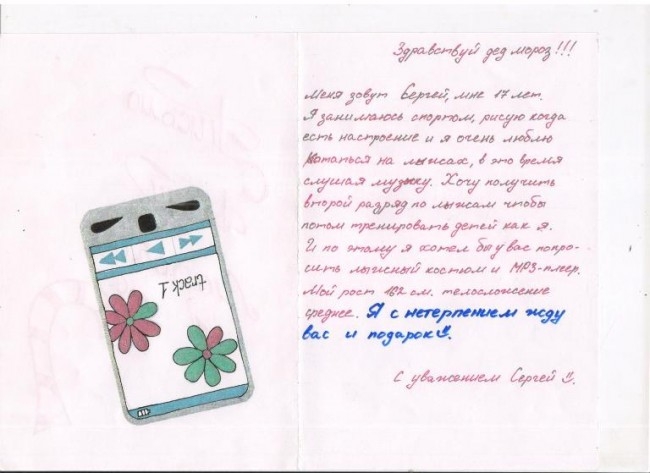 Здравствуй дед мороз!!!
Меня зовут Сергей, мне 17 лет.
Я занимаюсь спортом, рисую когда
есть настроение и я очень люблю
кататься на лыжах, в это время
слушая музыку. Хочу получить
второй разряд по лыжам чтобы
потом тренировать детей как я.
И по этому я хотел бы у вас попро-
сить лыжный костюм и MP3-плеер.
Мой рост 182 см. телосложение
среднее. Я с нетерпением жду
вас и подарок.
С уважением Сергей.
track 1